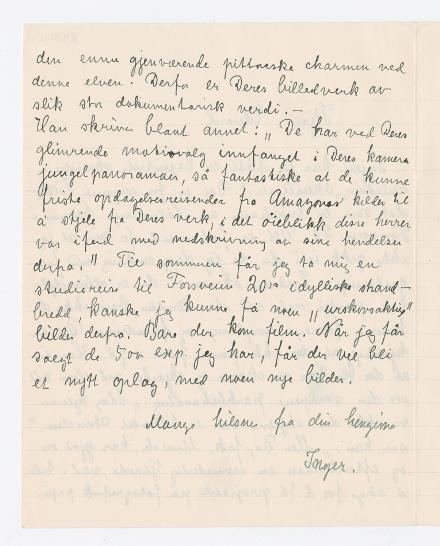 den ennu gjenværende pittoreske charmen ved
denne elven. Derfor er Deres billedverk av
slik stor dokumentarisk verdi. —
Han skriver blant annet: „De har ved Deres
glimrende motivvalg innfanget i Deres kamera
jungelpanoramaer, så fantastiske at de kunne
friste opdagelsesreisender fra Amazonas kilder til
å stjele fra Deres verk, i det öieblikk disse herrer
var iferd med nedskrivning av sine hendelser
derfra." Til sommeren får jeg ta mig en
studiereise til Fossveien 20ˢ idylliske strand-
bredd, kanskje jeg kunne få noen „urskovsaktige"
bilder derfra. Bare der kom film. Når jeg får
solgt de 500 exp. jeg har, får der vel bli
et nytt oplag, med noen nye bilder.
Mange hilsner fra din hengivne
Inger.